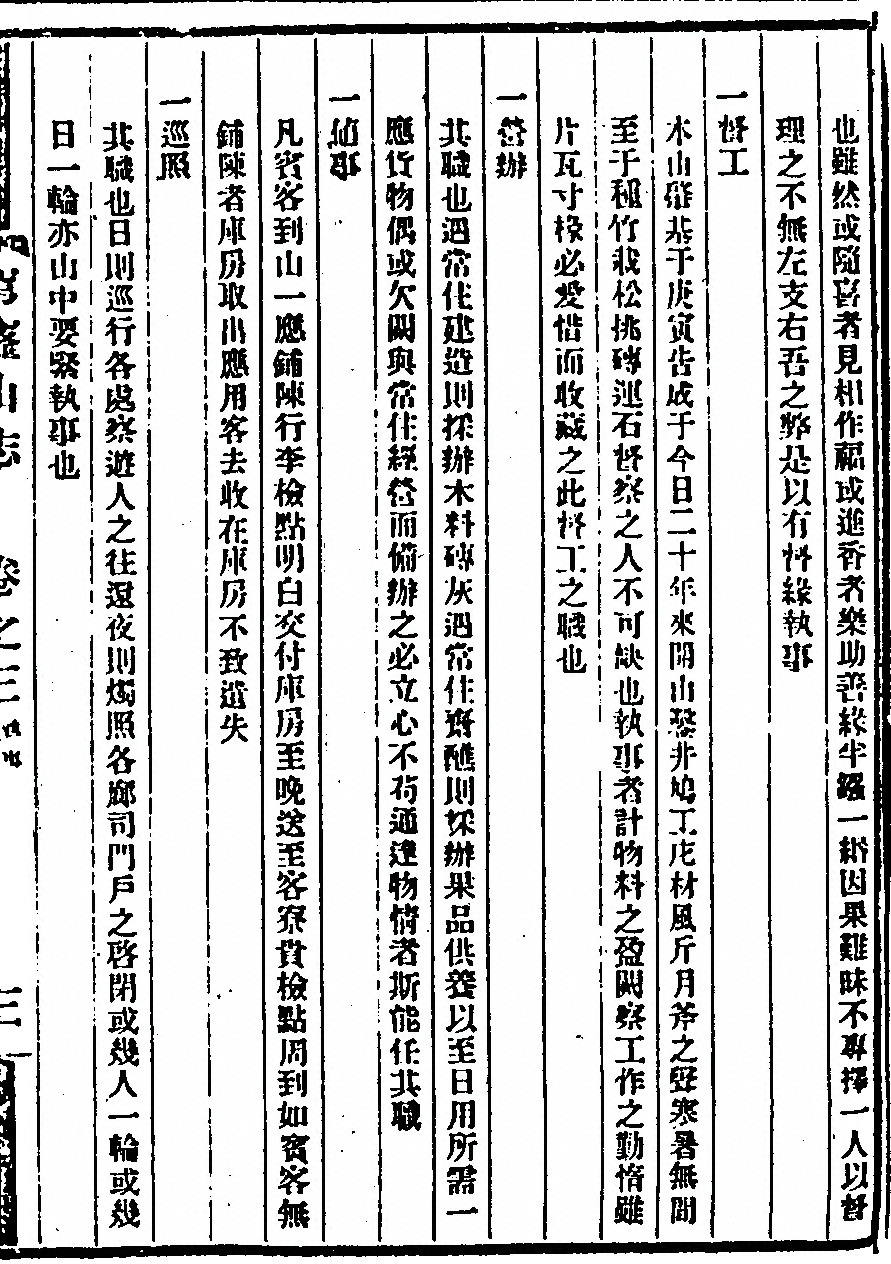 也雖然或隨喜者見相作福或進香者樂助善緣半鏹一緡因果難昧不專擇一人以督
理之不無左支右吾之弊是以有督緣執事
一督工
本山肇基于庚寅告成于今日二十年來開山鑿井鳩工庀材風斤月斧之聲寒暑無間
至于種竹栽松挑磚運石督察之人不可缺也執事者計物料之盈闕察工作之勤惰雖
片瓦寸椽必愛惜而收藏之此督工之職也
一營辦
其職也遇常住建造則採辦木料磚灰遇常住齋醮則採辦果品供養以至日用所需一
應貨物偶或欠闕與常住經營而備辦之必立心不苟通達物情者斯能任其職
一
凡賓客到山一應鋪陳行李檢點明白交付庫房至晚送至客寮貴檢點周到如賓客無
鋪陳者庫房取出應用客去收在庫房不致遺失
一巡照
其職也日則巡行各處察遊人之往還夜則燭照各廊司門戶之啓閉或幾人一輪或幾
日一輪亦山中要緊執事也
山志 卷之三 三